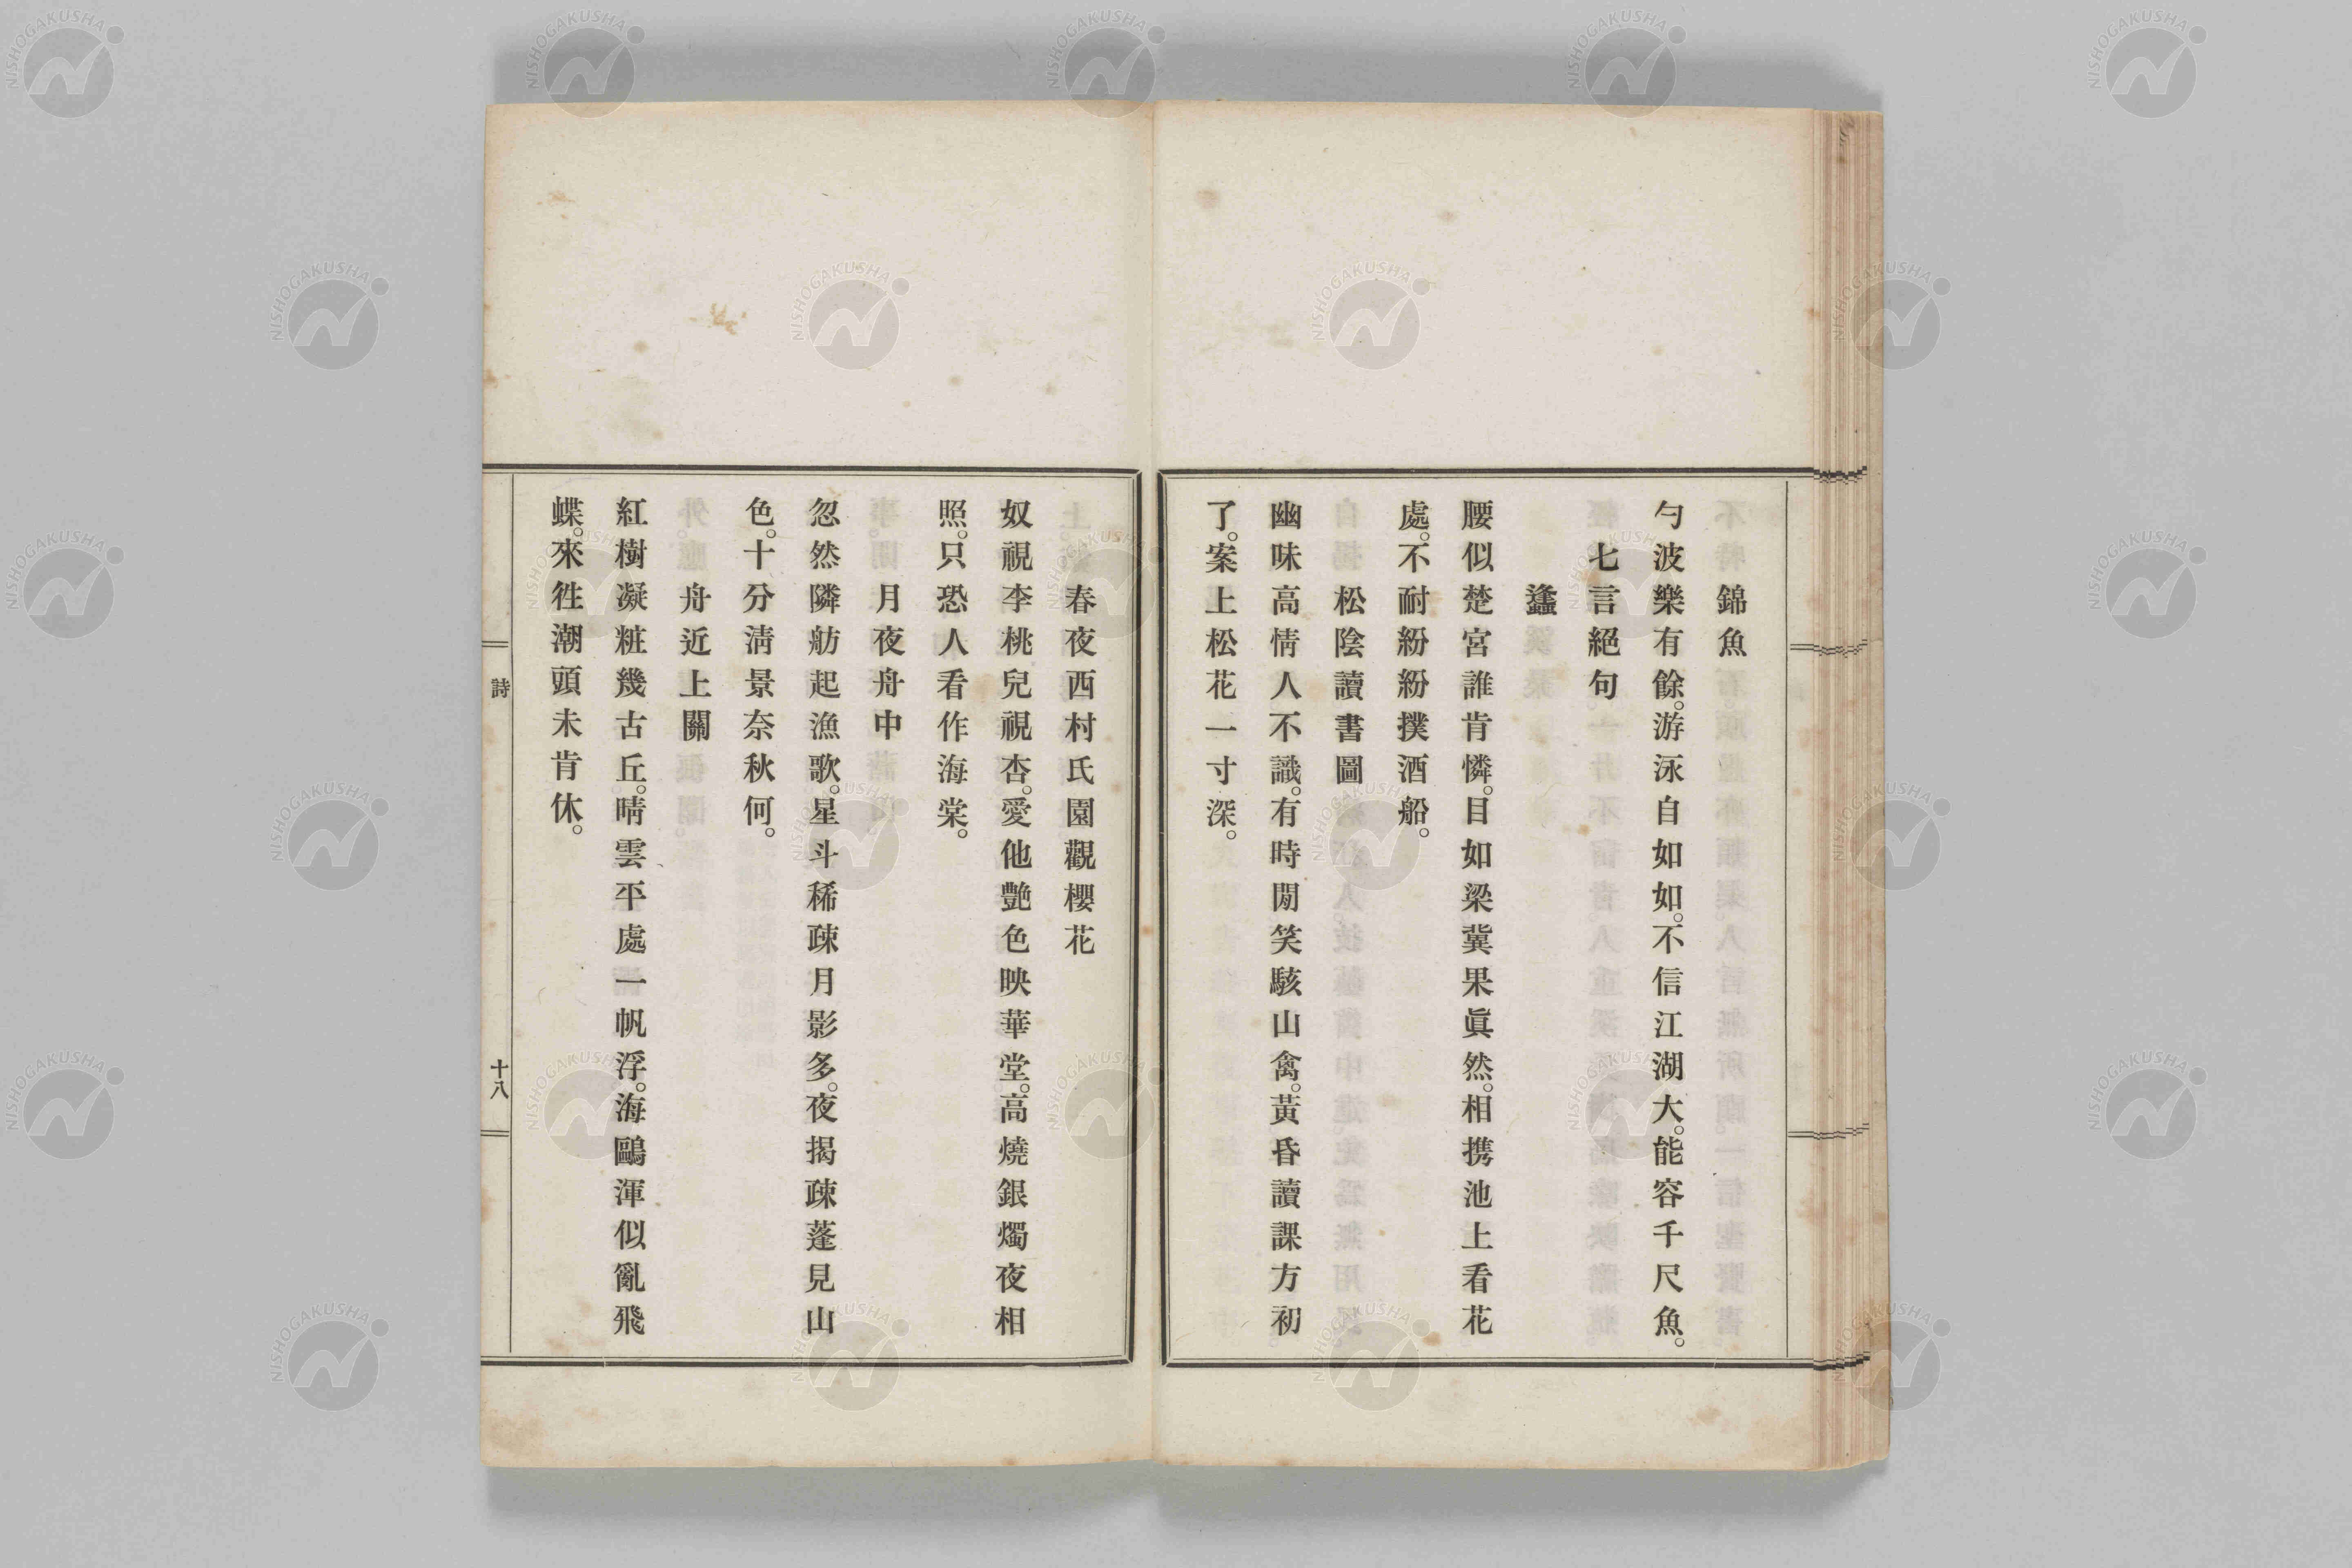 錦魚
勺波樂有餘。游泳自如如。不信江湖大。能容千尺魚。
七言絕句
蠭
腰似楚宮誰肯憐。目如梁冀果眞然。相携池上看花
處。不耐紛紛撲酒船。
松陰讀書圖
幽味高情人不識。有時閒笑駭山禽。黃昏讀課方初
了。案上松花一寸深。
春夜西村氏園觀櫻花
奴視李桃兒視杏。愛他艷色映華堂。高燒銀燭夜相
照。只恐人看作海棠。
月夜舟中
忽然隣舫起漁歌。星斗稀疎月影多。夜揭疎蓬見山
色。十分淸景奈秋何。
舟近上關
紅樹凝粧幾古丘。晴雲平處一帆浮。海鷗渾似亂飛
蝶。來徃潮頭未肯休。
詩
十八